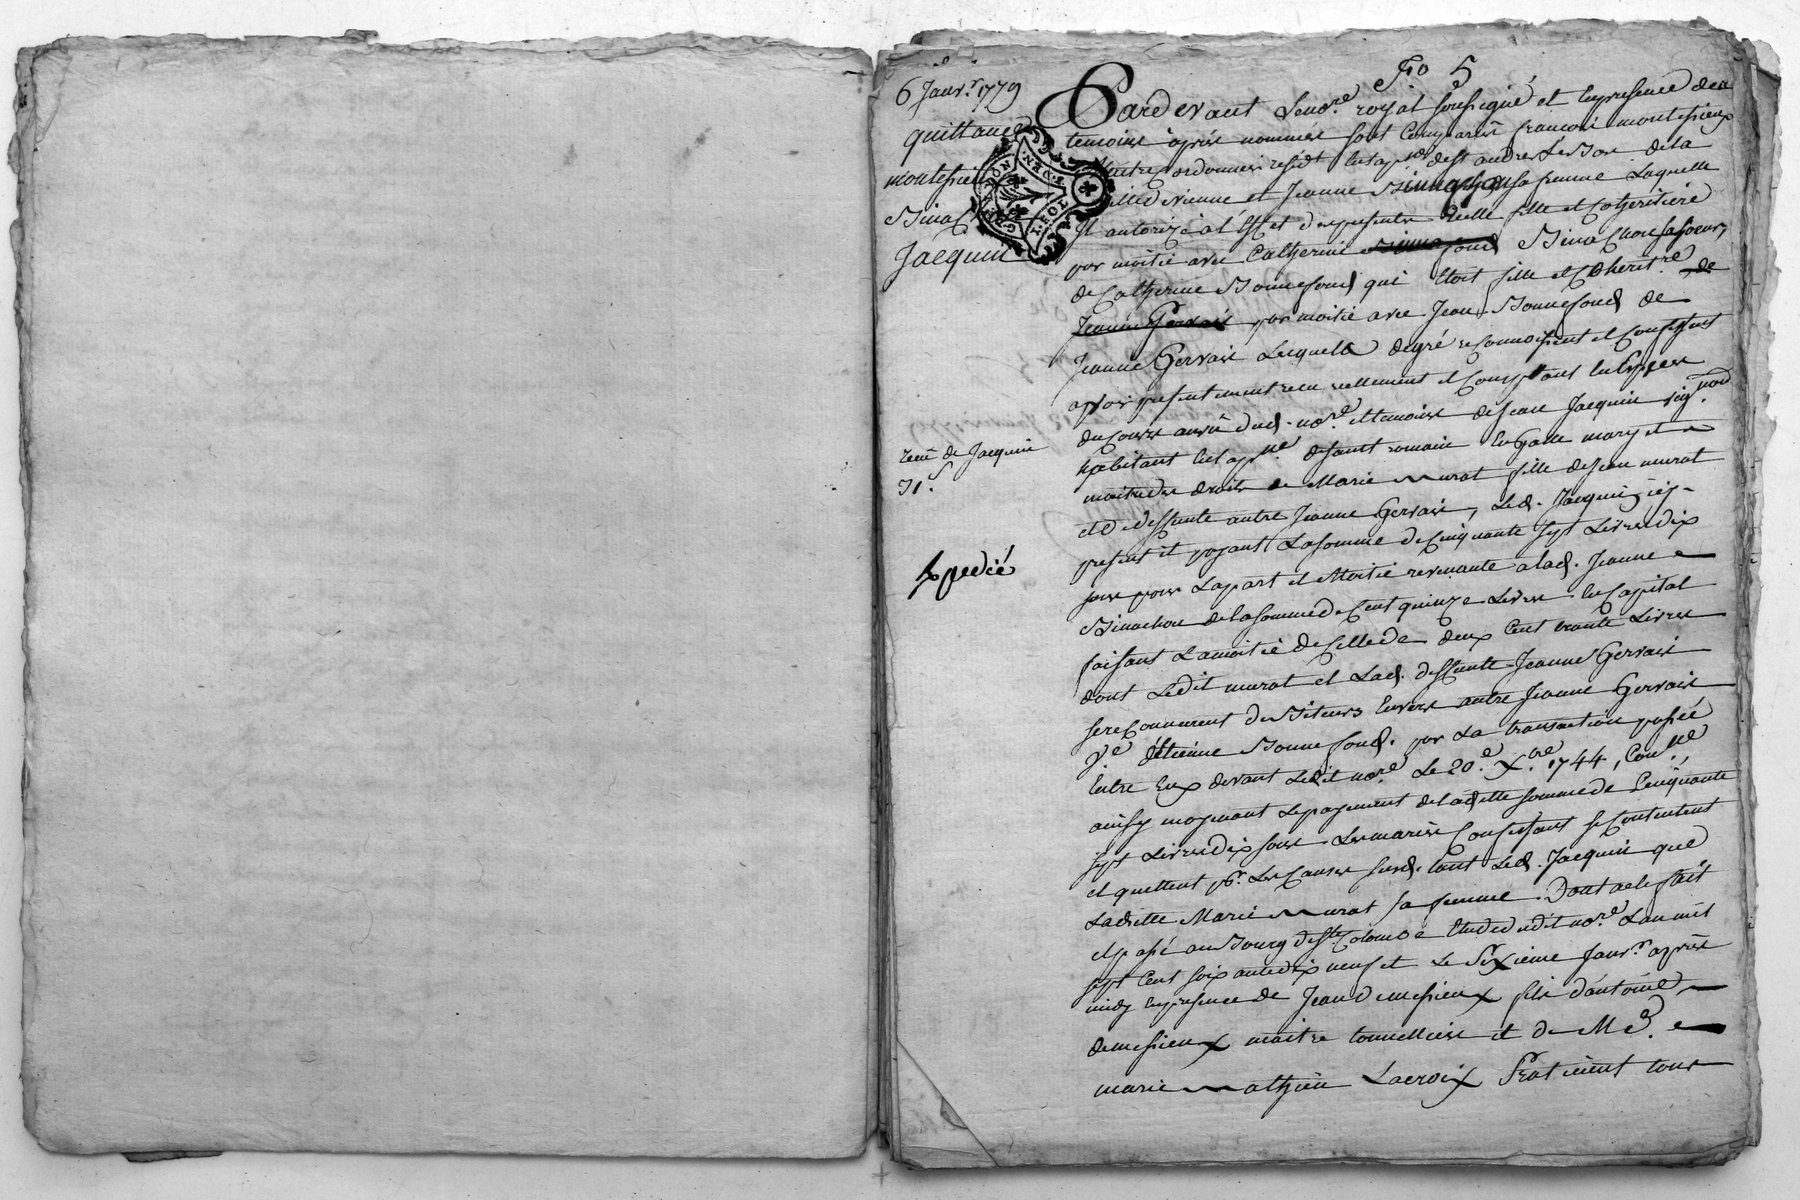 6 Janv.r 1779
quittance
montessieu
Binac
Jacquin
recu de Jacquin
51.s
Expedié
F.io 5
Pardevant Le no.re royal soussigné et en presence des
temoins apres nommés sont comparus francois montessieux
maitre cordonnier resid.t en la p.sse de st andre Le bas de la
ville de vienne et Jeanne Binachon sa femme Laquelle
il autorize a l'effet des presentes icelle fille et coheritiere
par moitié avec Catherine Binachon sa soeur,
de Catherine Bonnefond qui etoit fille et Coherit.re de
Jeanne Gervais par moitié avec Jean Bonnefond de
Jeanne Gervais Lesquels de gré reconnoissent et confessent
avoir presentement recu reellement et comptant en especes
du cours au vû dud. no.re et temoins de Jean Jacquin vig.non
habitant en la p.sse de saint romain en Galle mary et
maitre des droits de Marie murat fille de Jean murat
et de deffunte autre Jeanne Gervais, Led. Jacquin icy
present et payant La somme de cinquante sept Livres dix
sous pour La part et Moitié revenante a lad. Jeanne
Binachon de la somme de Cent quinze Livres en Capital
faisant La moitié de Celle de deux Cent trente Livres
dont Ledit murat et Lad. deffunte Jeanne Gervais
se reconnurent debiteurs Envers autre Jeanne Gervais
v.e d'étienne Bonnefond. par La transaction passée
Entre Eux devant Ledit no.re Le 20.e X.bre 1744,
ainsy moyenant Le payement de ladite somme de Cinquante
sept Livres dix sous Les mariés Confessant se Contentent
et quittent p.r Les Causes susd. tant Led. Jacquin que
Ladite Marie murat sa femme. Dont acte fait
et passé au Bourg de S.te Colombe Etude dudit no.re L'an mil
sept Cent soixante dix neuf et Le Sixieme Janv.r apres
midy en presence de Jean Demessieux fils d'antoine
demessieux maitre tonnellier et de M.e
marie mathieu Lacroix Praticient tous